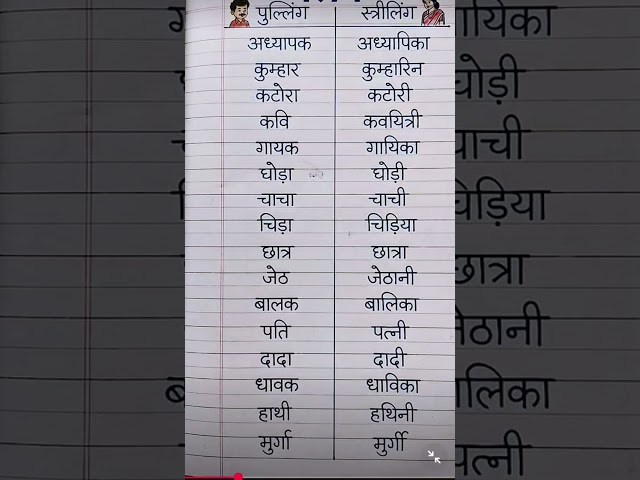 पुल्लिंग स्त्रीलिंग
अध्यापक अध्यापिका
कुम्हार कुम्हारिन
कटोरा कटोरी
कवि कवयित्री
गायक गायिका
घोड़ा घोड़ी
चाचा चाची
चिड़ा चिड़िया
छात्र छात्रा
जेठ जेठानी
बालक बालिका
पति पत्नी
दादा दादी
धावक धाविका
हाथी हथिनी
मुर्गा मुर्गी